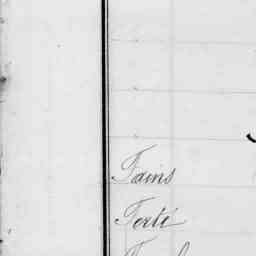 Fains
Ferté